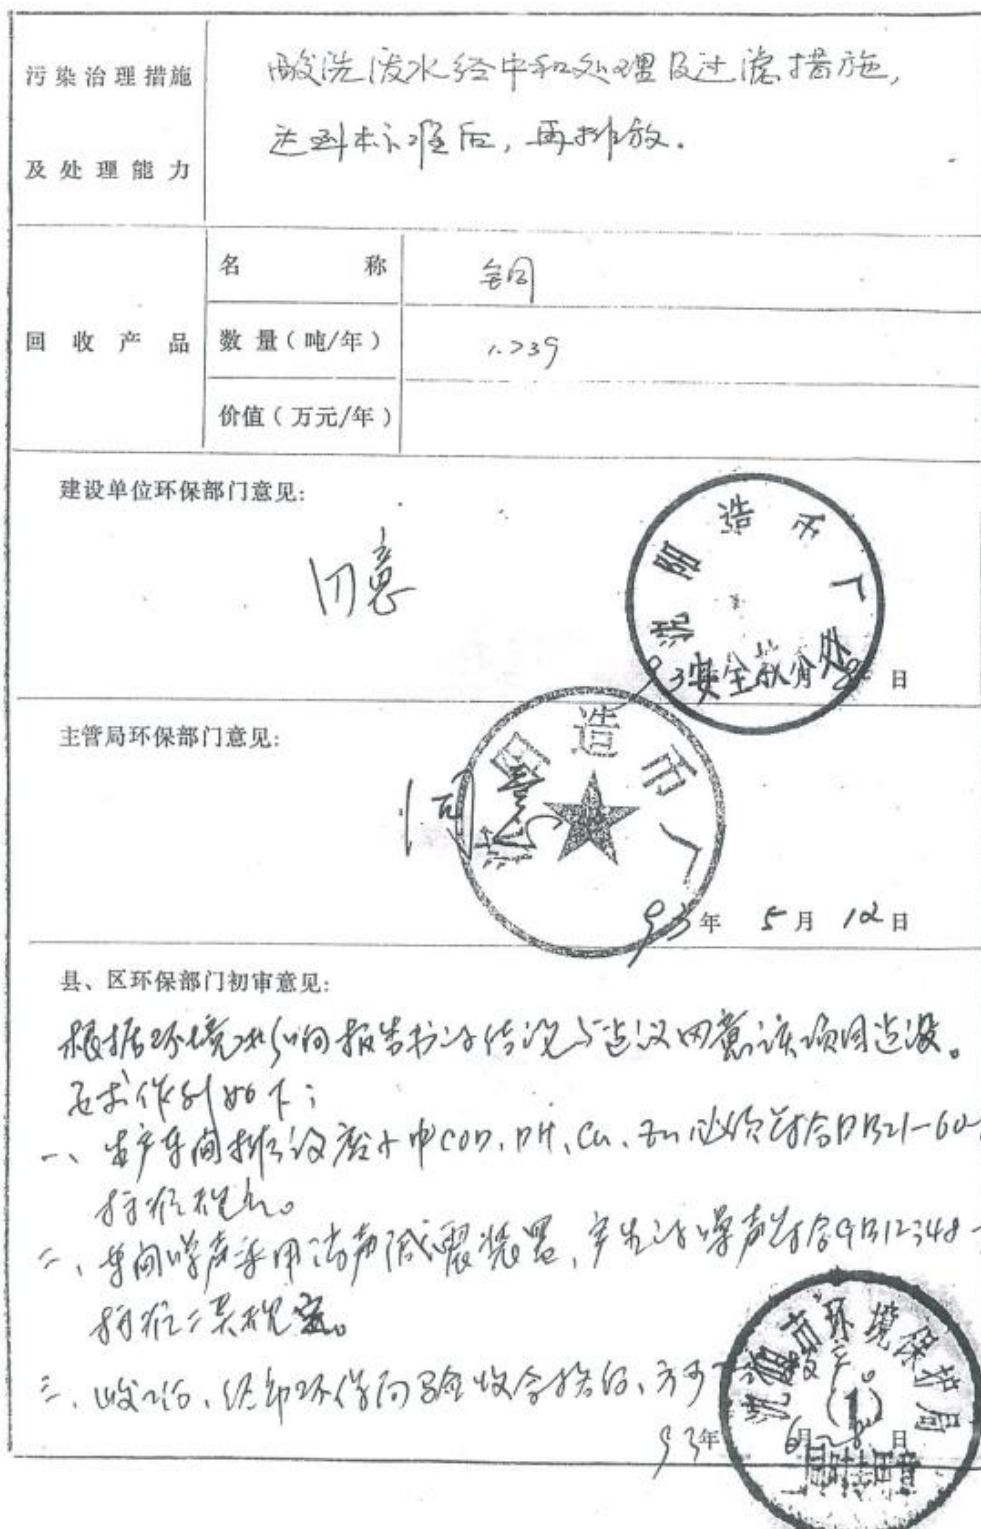 污染治理措施
及处理能力
酸洗废水经中和处理及过滤措施,
达到标准后,再排放.
回收产品
名称
铜
数量(吨/年)
1.239
价值(万元/年)
建设单位环保部门意见:
同意
沈阳造币厂
安全教育处
93
日
主管局环保部门意见:
同意
沈阳造币厂
93年 5月 12日
县、区环保部门初审意见:
根据环境影响报告书的结论与建议同意该项目建设。
要求作到如下:
一、生产车间排放废水中COD、PH、Cu、Zn必须符合DB21-60-
标准规定。
二、车间噪声采用消声减震装置,产生的噪声符合GB12348-
标准二类规定。
三、竣工后、经市环保局验收合格后、方可
沈阳市环境保护局
(1)
93年 月 日